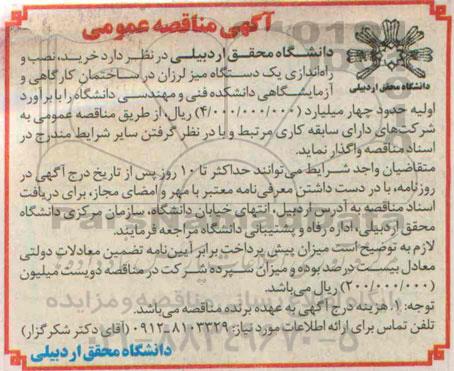 آگهی مناقصه عمومی
دانشگاه محقق اردبیلی
دانشگاه محقق اردبیلی در نظر دارد خرید، نصب و
راه‌اندازی یک دستگاه میز لرزان در ساختمان کارگاهی و
آزمایشگاهی دانشکده فنی و مهندسی دانشگاه را با برآورد
اولیه حدود چهار میلیارد (۴/۰۰۰/۰۰۰/۰۰۰) ریال، از طریق مناقصه عمومی به
شرکت‌های دارای سابقه کاری مرتبط و با در نظر گرفتن سایر شرایط مندرج در
اسناد مناقصه واگذار نماید.
متقاضیان واجد شرایط می‌توانند حداکثر تا ۱۰ روز پس از تاریخ درج آگهی در
روزنامه، با در دست داشتن معرفی‌نامه معتبر با مهر و امضای مجاز، برای دریافت
اسناد مناقصه به آدرس اردبیل، انتهای خیابان دانشگاه، سازمان مرکزی دانشگاه
محقق اردبیلی، اداره رفاه و پشتیبانی دانشگاه مراجعه فرمایند.
لازم به توضیح است میزان پیش پرداخت برابر آیین‌نامه تضمین معاملات دولتی
معادل بیست درصد بوده و میزان سپرده شرکت در مناقصه دویست میلیون
(۲۰۰/۰۰۰/۰۰۰) ریال می‌باشد.
توجه: ۱. هزینه درج آگهی به عهده برنده مناقصه می‌باشد.
تلفن تماس برای ارائه اطلاعات مورد نیاز: ۸۱۰۳۳۲۹-۰۹۱۲ (آقای دکتر شکرگزار)
دانشگاه محقق اردبیلی